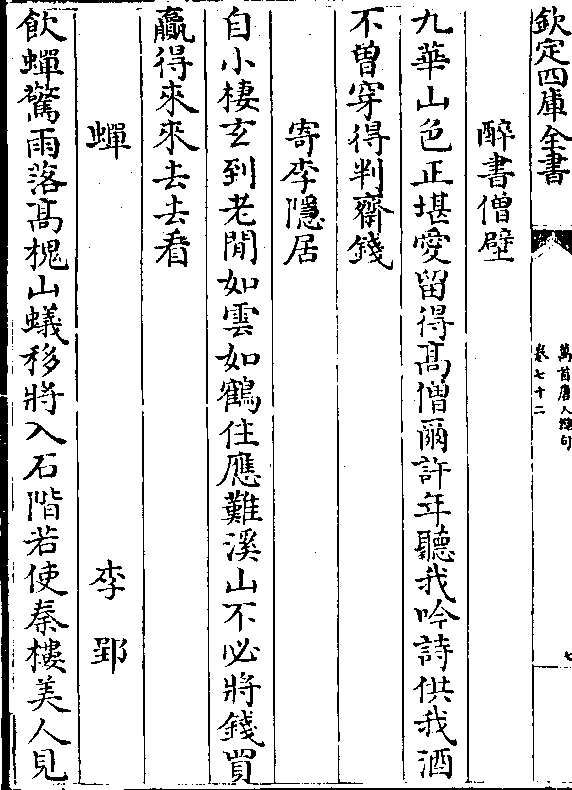 欽定四庫全書
萬首唐人絶句
卷七十二
七
醉書僧壁
九華山色正堪愛留得高僧爾許年聽我吟詩供我酒
不曽穿得判齋錢
寄李隱居
自小棲玄到老閒如雲如鶴住應難溪山不必將錢買
贏得來來去去看
蟬 李郢
飲蟬驚雨落高槐山蟻移將入石階若使秦樓美人見